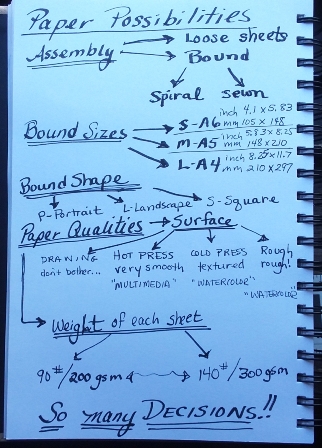 Paper Possibilities
Assembly Loose sheets
Bound
Spiral sewn
Bound Sizes S-A6 inch 4.1 x 5.83
mm 105 x 148
M-A5 inch 5.83 x 8.25
mm 148 x 210
L-A4 inch 8.25 x 11.7
mm 210 x 297
Bound Shape
P-Portrait L-Landscape S-Square
Paper Qualities Surface
DRAWING HOT PRESS COLD PRESS Rough
don't bother... very smooth textured rough!
"MULTIMEDIA" "WATERCOLOR" "WATERCOLOR"
Weight of each sheet
90#/200gsm 140#/300gsm
So many DECISIONS!!